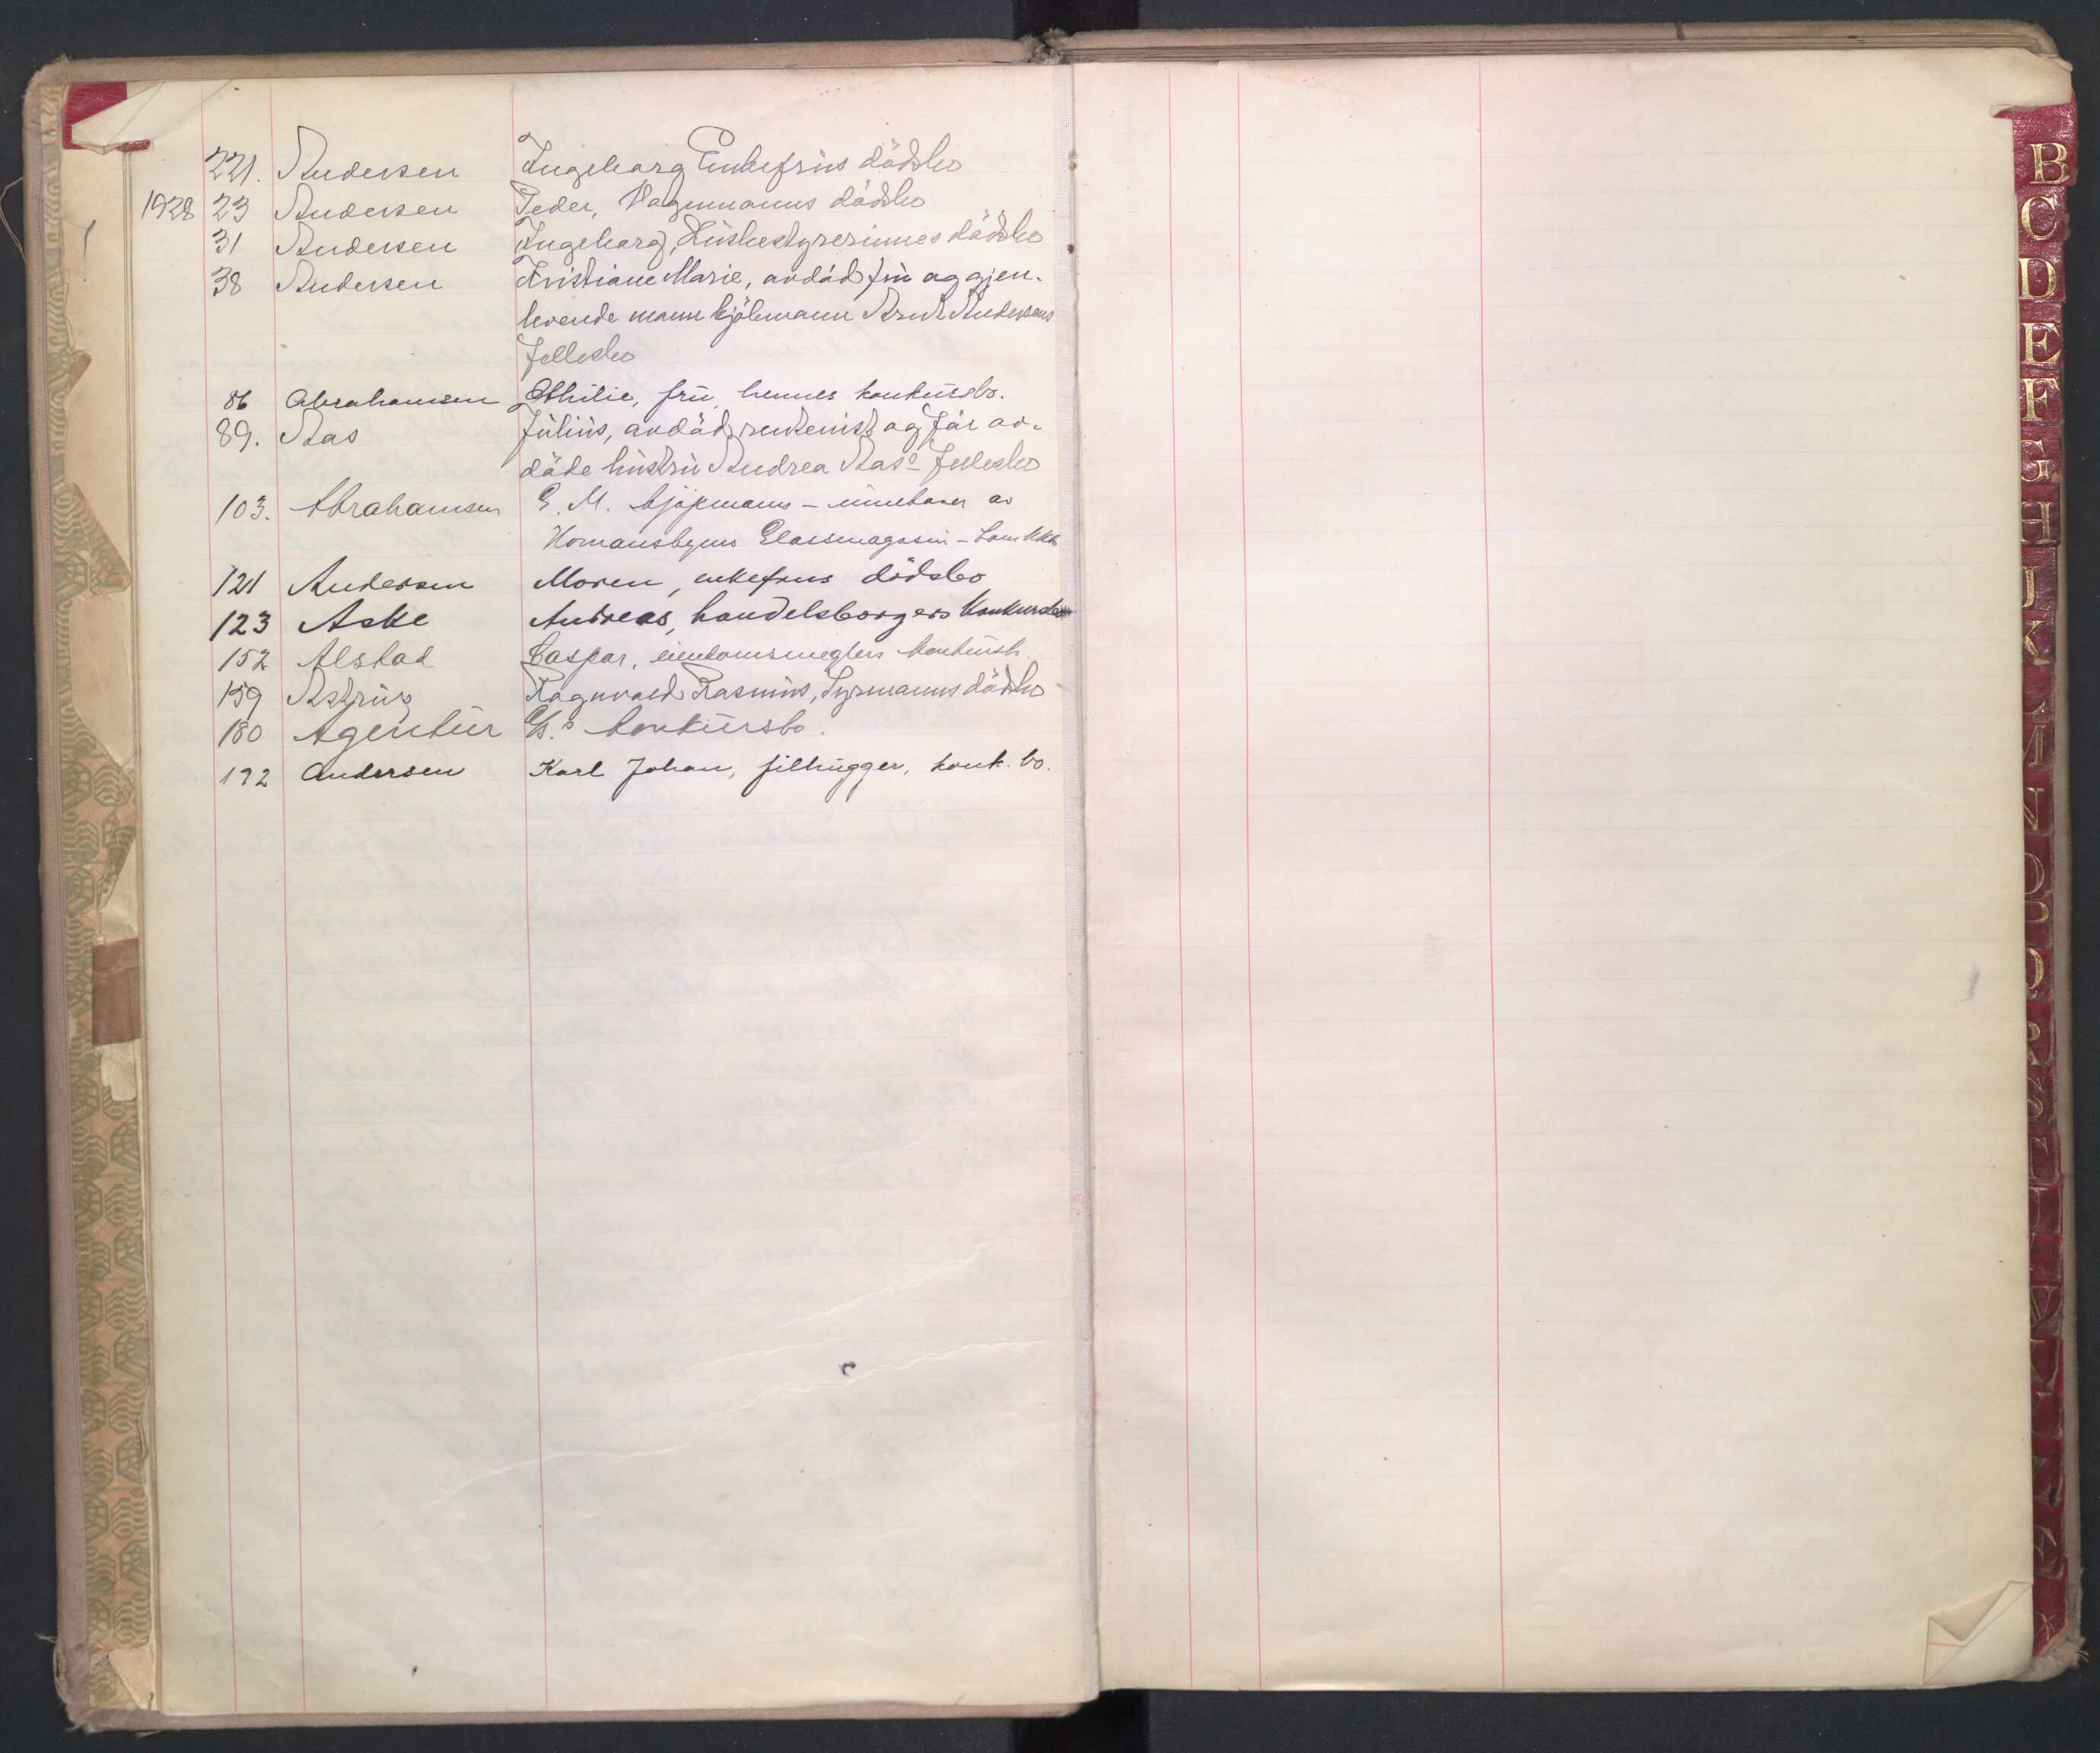 221. Andersen Ingeborg Enkefrus dödsbo
1928 23 Andersen Peder, Vognmanns dödsbo
31 Andersen Ingeborg, Husbestyrerinnes dödsbo
38 Andersen Kristiane Marie, avdöd fru og gjen-
levende mann kjölmann Arnt Andersens
fellesbo
86 Abrahamsen Othilie, fru, hennes konkursbo.
89. Aas Julius, avdöd rentenist og för av-
döde hustru Andrea Aas' fellesbo
103. Abrahamsen E. M. kjøpmanns – innehaver av
Homansbyens Glassmagasin –
121 Andersen Maren, enkefrus dödsbo
123 Aske Andreas, handelsborgers Konkursbo
152 Alstad Caspar, eiendomsmeglers konkursb.
159 Astrup Ragnvald Rasmus, Fyrmanns dödsbo
180 Agentur konkursbo.
192 Andersen Karl Johan, filhugger, konk. bo.
B
C
D
E
F
G
H
J
K
L
M
N
O
P
Q
R
S
T
U
V
W
X
Y
Z
Æ